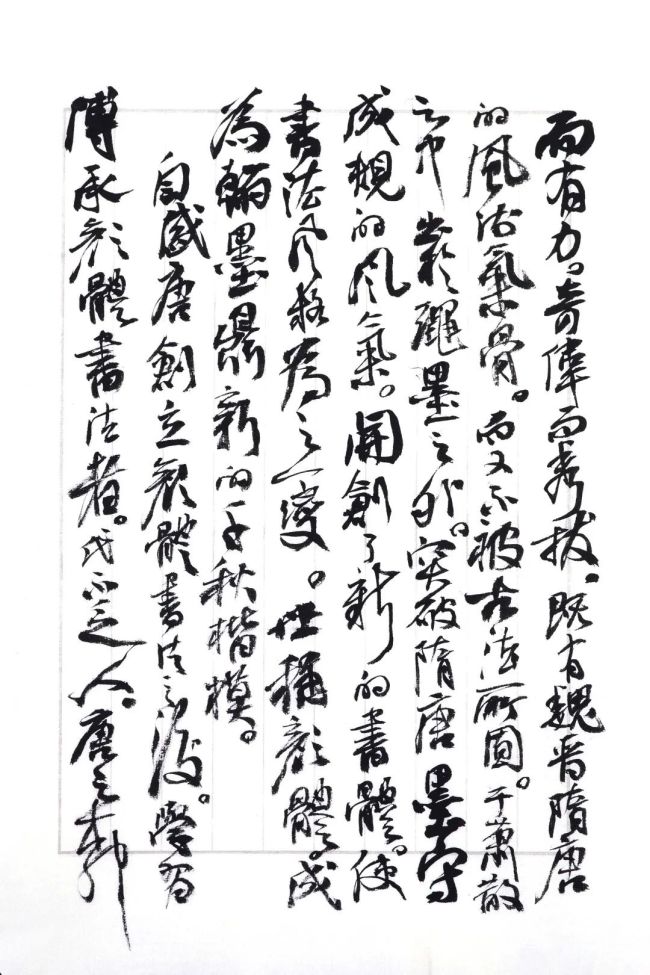 而有力。奇偉而秀拔。既有魏晋隋唐
的風活氣骨。而又不被古法所圍。于蕭散
之中出於繩墨之外。突破隋唐墨守
成規的風氣。開創了新的書體。使
書法風格為之一變。世稱顏體。成
為翰墨鼎新的千秋楷模。
自盛唐創立顏體書法之後。學習
傳承顏體書法者。代不乏人。唐之